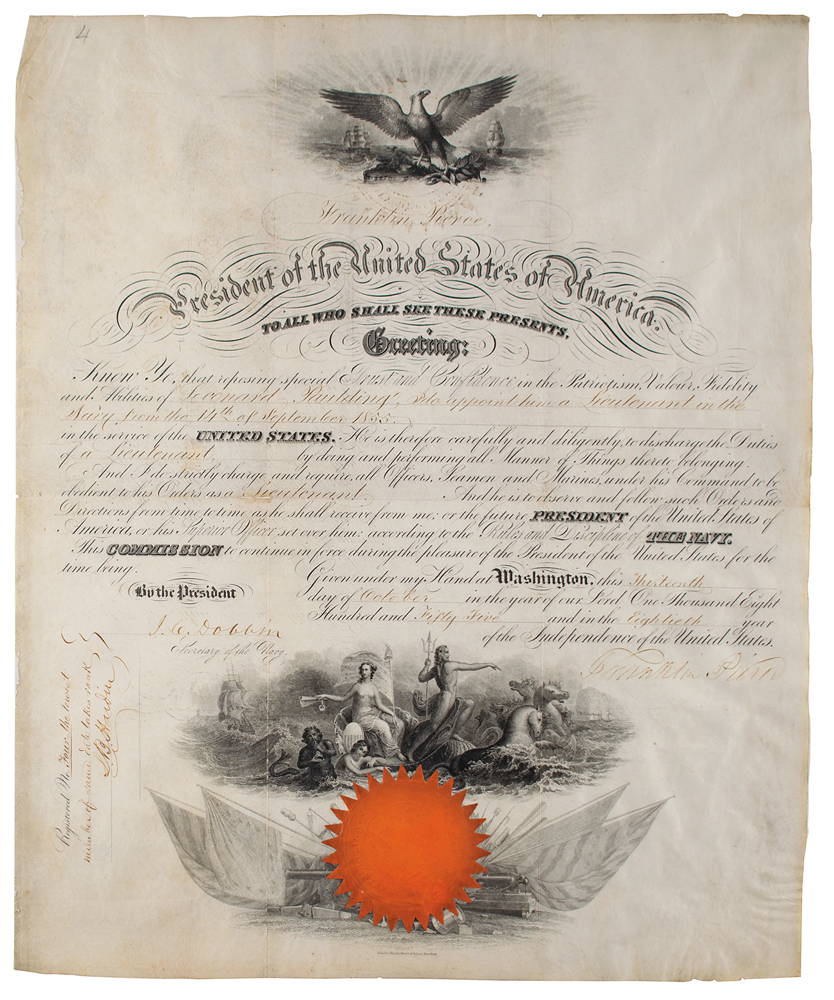 4
Franklin Pierce,
President of the United States of America.
TO ALL WHO SHALL SEE THESE PRESENTS,
Greeting:
Know Ye, that reposing special Trust and Confidence in the Patriotism, Valour, Fidelity
and Abilities of Leonard Paulding, I do appoint him a Lieutenant in the
Navy from the 14th of September 1855
in the service of the UNITED STATES. He is therefore carefully and diligently to discharge the Duties
of a Lieutenant by doing and performing all Manner of Things thereto belonging.
And I do strictly charge and require all Officers, Seamen and Marines, under his Command to be
obedient to his Orders as a Lieutenant. And he is to observe and follow such Orders and
Directions from time to time as he shall receive from me, or the future PRESIDENT of the United States of
America, or his Superior Officer set over him, according to the Rules and Discipline of THE NAVY.
This COMMISSION to continue in force during the pleasure of the President of the United States for the
time being.
Given under my Hand at Washington, this Thirteenth
By the President
day of October in the year of our Lord One Thousand Eight
Hundred and Fifty Five and in the Eightieth year
of the Independence of the United States.
J. C. Dobbin
Secretary of the Navy.
Franklin Pierce
Registered No. Four the lowest
number of same date takes rank